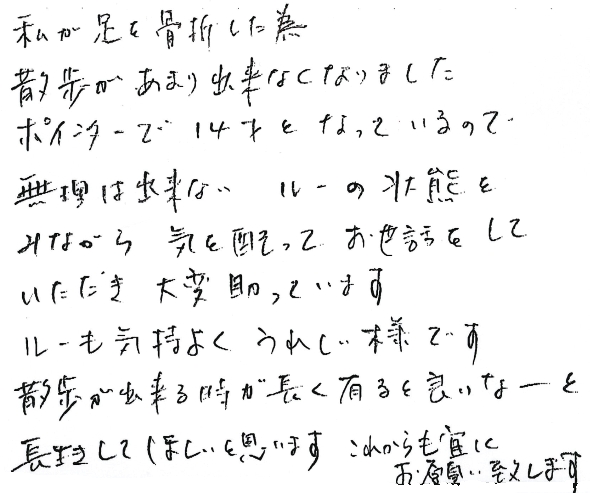 私が足を骨折した為
散歩があまり出来なくなりました
ポインターで 14才となっているので
無理は出来ない ルーの状態を
みながら 気を配って お世話をして
いただき 大変助っています
ルーも気持よく うれしい様です
散歩が出来る時が長く有ると良いなーと
長生きしてほしいと思います これからも宜しく
お願い致します